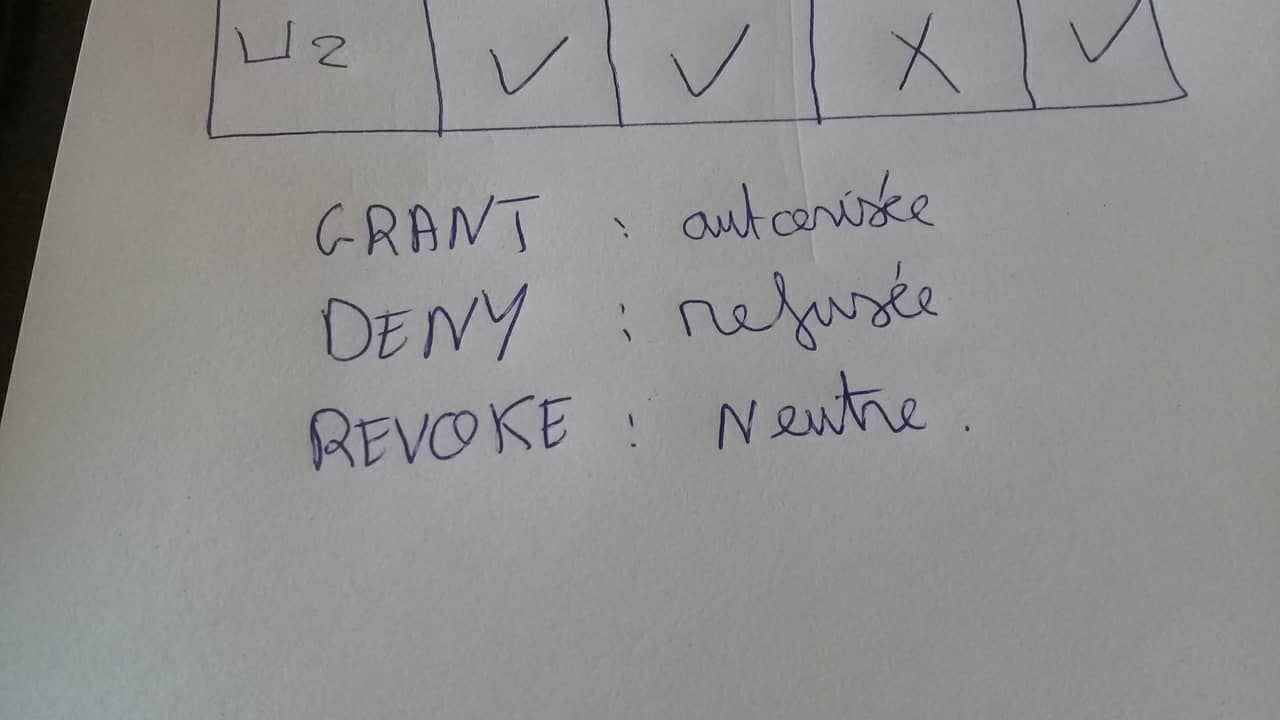 U2 ✓ ✓ X ✓
GRANT : autorisée
DENY : refusée
REVOKE : Neutre.